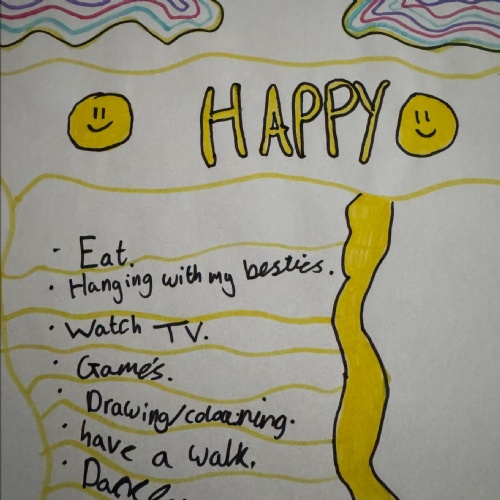 HAPPY
- Eat.
· Hanging with my besties.
· Watch TV.
· Game's.
· Drawing/colouring.
· have a walk.